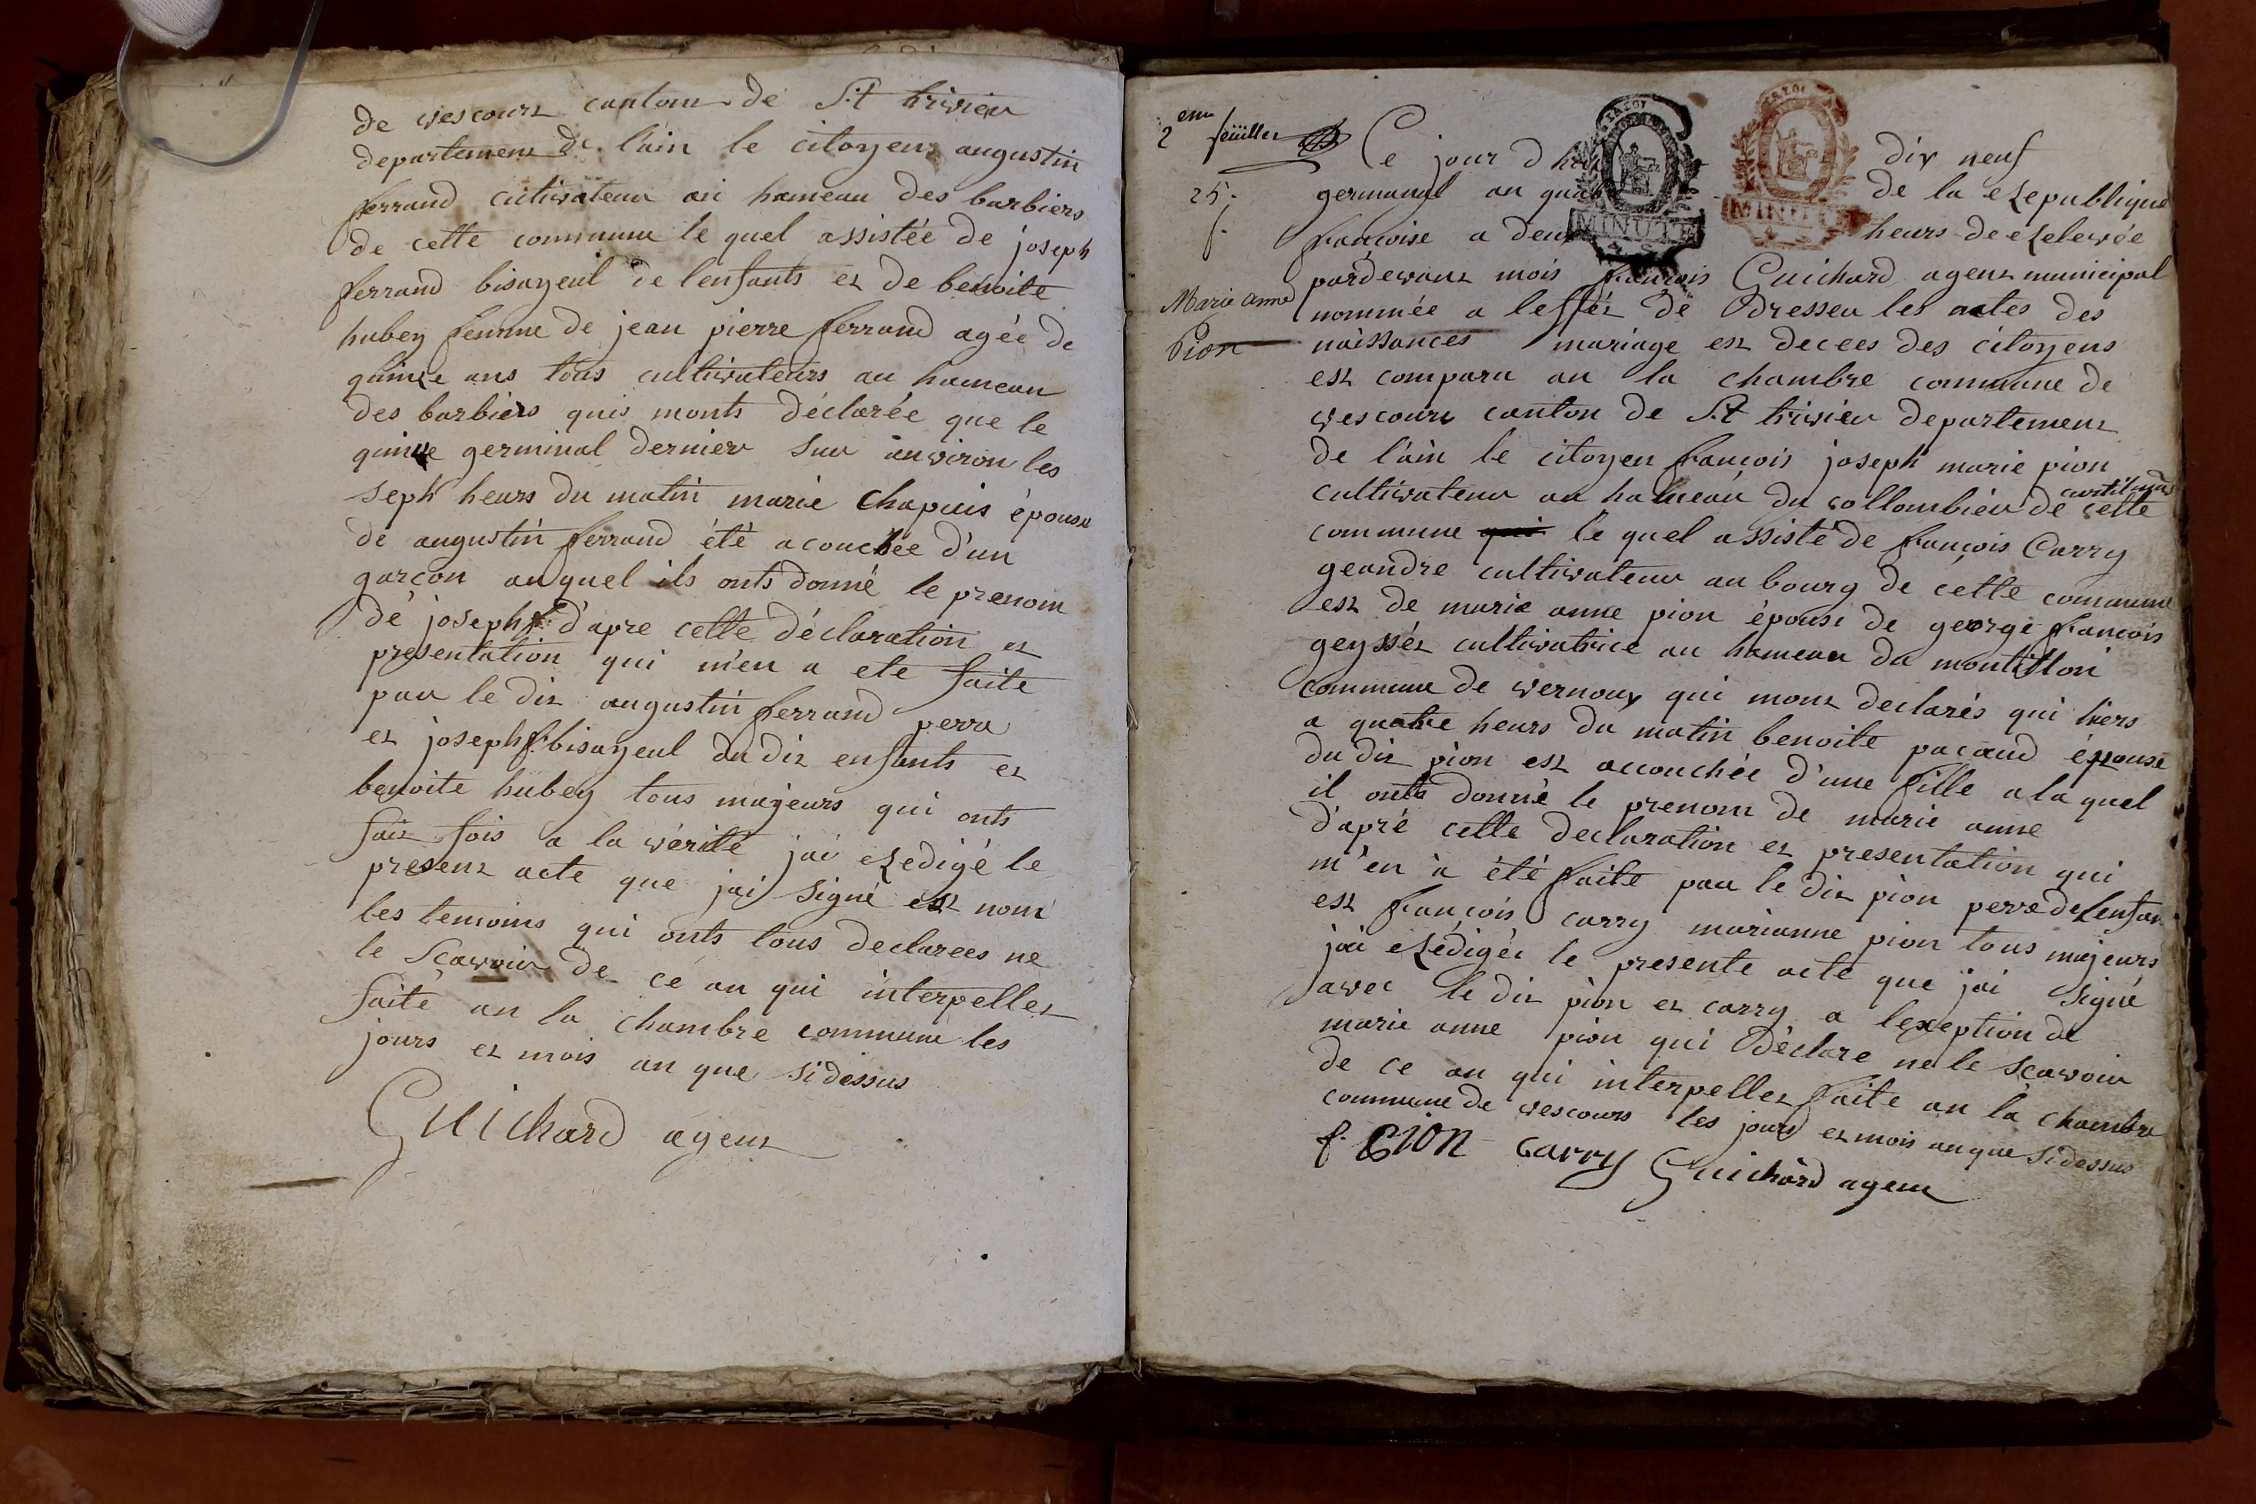 de vescours cantom de St trivier
departement de l'ain le citoyent augustin
ferrand cultivateur au hameau des barbiers
de cette commune le quel assistée de joseph
ferrand bisayeul de lenfants et de benoite
hubey femme de jean pierre ferrand agée de
quinze ans tous cultivateurs au hameau
des barbiers quis monts déclarée que le
quinze germinal dernier sur anviron les
seph heurs du matin marie Chapuis épouse
de augustin ferrand été acouchée d'un
garçon auquel ils onts donné le prenom
de joseph f. d'apre cette déclaration et
presentation qui m'en a ete faite
par le dit augustin ferrand perre
et joseph f. bisayeul du dit enfants et
benoite hubey tous majeurs qui onts
fait fois a la vérité jai Redigé le
present acte que jai signé est nom
les temoins qui onts tous declarees ne
le scavoir de ce an qui interpellet
faite an la chambre commune les
jours et mois an que sidessus
Guichard agent
2 eme feüillet
25.
f.
Marie anne
Pion
Ce jour d dix neuf
germinal an de la Republique
francoise a deux heurs de Relevée
pardevant mois francois Guichard agent municipal
nommée a leffét de dresser les actes des
naissances mariage est decees des citoyens
est comparu an la chambre commune de
vescours canton de St trivier departement
de l'ain le citoyen francois joseph marie pion
cultivateur au hameau du collombier de cette
commune qui le quel assisté de françois Carry
geandre cultivateur au bourg de cette commune
est de marie anne pion épouse de george francois
geyssét cultivatrice au hameau du montillon
commune de vernoux qui mont declarés qui hiers
a quatre heurs du matin benoite pacaud épouse
du dit pion est accouchée d'une fille a la quel
il onts donné le prenom de marie anne
d'apré cette declaration et presentation qui
m'en à été faite par le dit pion perre de lenfan
est françois carry marianne pion tous majeurs
jai Rédigéi le presente acte que jai signé
avec le dit pion et carry a lexeption de
marie anne pion qui déclare ne le scavoir
de ce an qui interpellet faite an la chambre
commune de vescours les jours et mois anque sidessus
f. Pion Carry Guichard agent
MINUTE
MINUTE